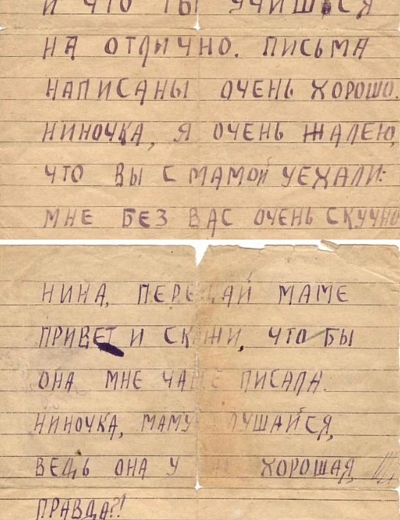 И ЧТО ТЫ УЧИШЬСЯ
НА ОТЛИЧНО. ПИСЬМА
НАПИСАНЫ ОЧЕНЬ ХОРОШО.
НИНОЧКА, Я ОЧЕНЬ ЖАЛЕЮ,
ЧТО ВЫ С МАМОЙ УЕХАЛИ:
МНЕ БЕЗ ВАС ОЧЕНЬ СКУЧНО
НИНА, ПЕРЕДАЙ МАМЕ
ПРИВЕТ И СКАЖИ, ЧТО БЫ
ОНА МНЕ ЧАЩЕ ПИСАЛА.
НИНОЧКА, МАМУ СЛУШАЙСЯ,
ВЕДЬ ОНА У ХОРОШАЯ,
ПРАВДА?!